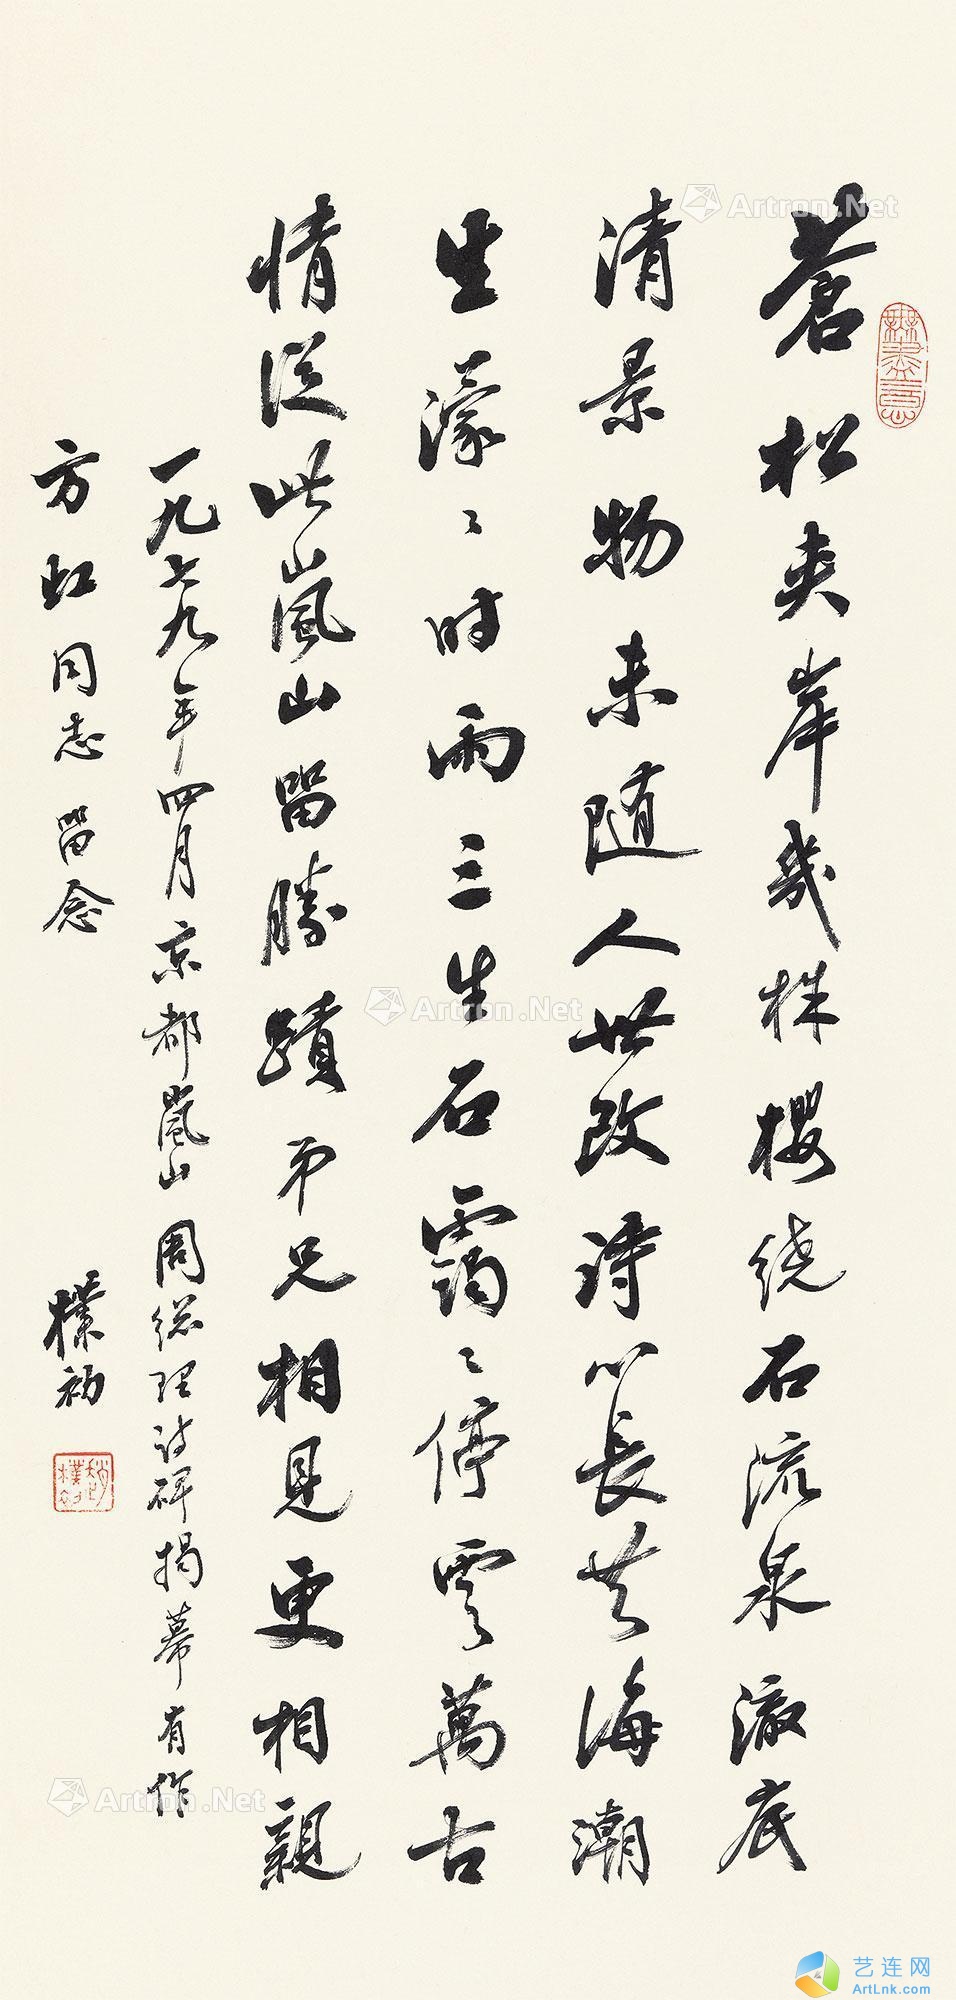 蒼松夹岸幾株樱绕石流泉澈底
清景物未随人世改詩心長共海潮
生濛〻时雨三生石靄〻停雲萬古
情從此嵐山留勝蹟弟兄相見更相親
一九七九年四月京都嵐山周総理诗碑揭幕有作
方虹同志留念
樸初
趙樸初
無盡意
Artron.Net
Artron.Net
Artron.Net
艺连网
ArtLnk.com